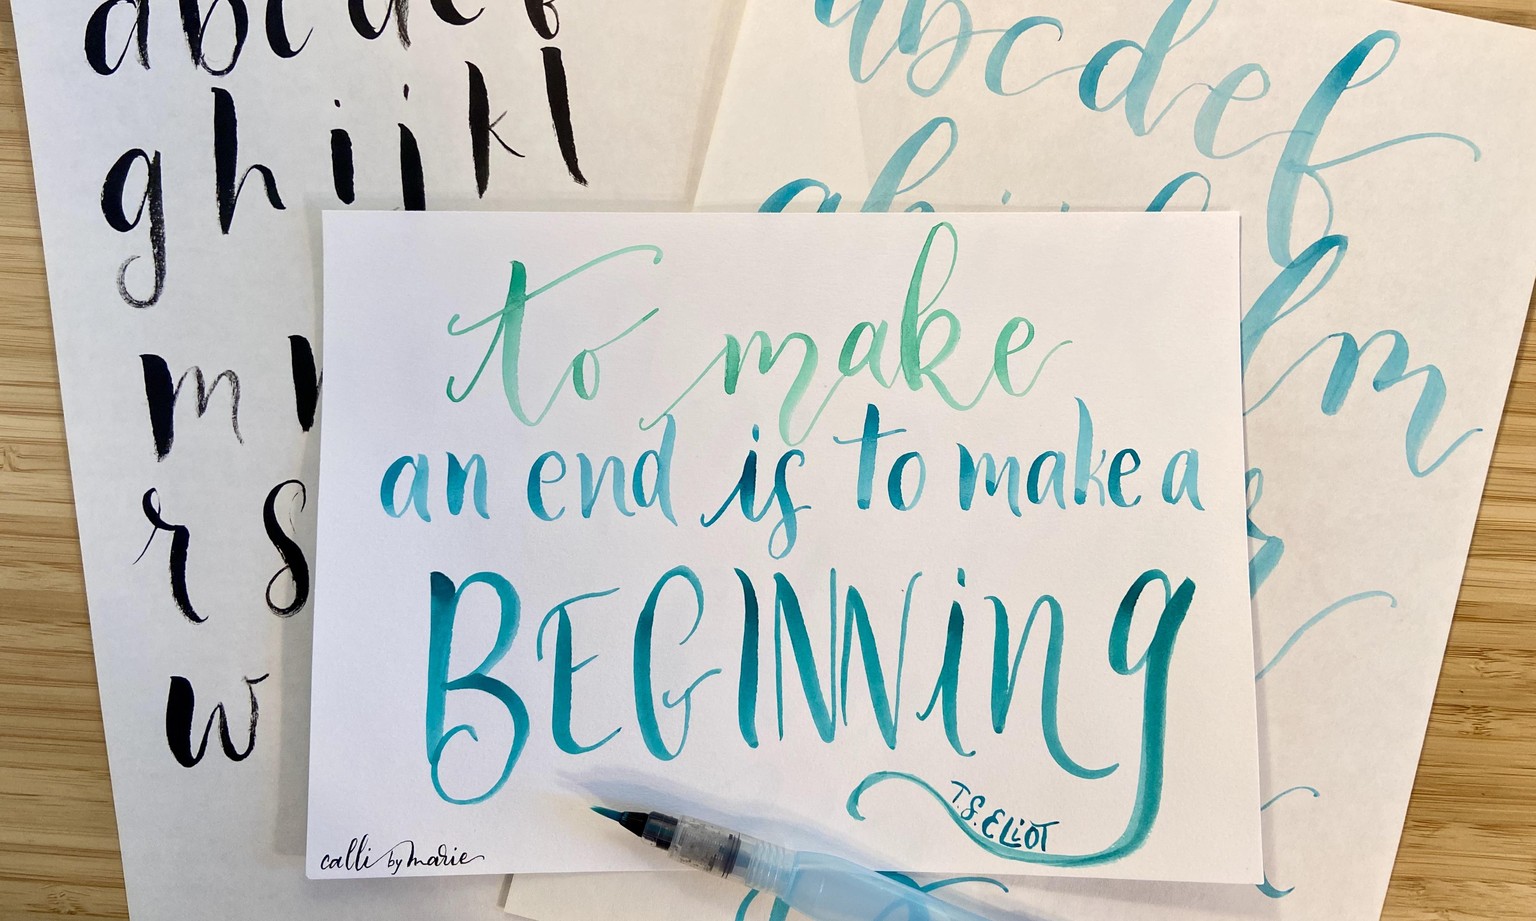 abcdef
ghijkl
m
rs
w
abcdef
gh
lm
to make
an end is to make a
BEGINNing
T.S. ELiOT
calli by marie